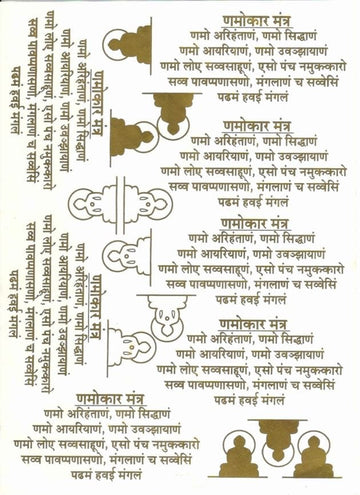 णमोकार मंत्र
णमो अरिहंताणं, णमो सिद्धाणं
णमो आयरियाणं, णमो उवञ्झायाणं
णमो लोए सव्वसाहूणं, एसो पंच नमुककारो
सव्व पावप्पणासणो, मंगलाणं च सव्वेसिं
पढमं हवई मंगलं
णमोकार मंत्र
णमो अरिहंताणं, णमो सिद्धाणं
णमो आयरियाणं, णमो उवञ्झायाणं
णमो लोए सव्वसाहूणं, एसो पंच नमुककारो
सव्व पावप्पणासणो, मंगलाणं च सव्वेसिं
पढमं हवई मंगलं
णमोकार मंत्र
णमो अरिहंताणं, णमो सिद्धाणं
णमो आयरियाणं, णमो उवञ्झायाणं
णमो लोए सव्वसाहूणं, एसो पंच नमुककारो
सव्व पावप्पणासणो, मंगलाणं च सव्वेसिं
पढमं हवई मंगलं
णमोकार मंत्र
णमो अरिहंताणं, णमो सिद्धाणं
णमो आयरियाणं, णमो उवञ्झायाणं
णमो लोए सव्वसाहूणं, एसो पंच नमुककारो
सव्व पावप्पणासणो, मंगलाणं च सव्वेसिं
पढमं हवई मंगलं
णमोकार मंत्र
णमो अरिहंताणं, णमो सिद्धाणं
णमो आयरियाणं, णमो उवञ्झायाणं
णमो लोए सव्वसाहूणं, एसो पंच नमुककारो
सव्व पावप्पणासणो, मंगलाणं च सव्वेसिं
पढमं हवई मंगलं
णमोकार मंत्र
णमो अरिहंताणं, णमो सिद्धाणं
णमो आयरियाणं, णमो उवञ्झायाणं
णमो लोए सव्वसाहूणं, एसो पंच नमुककारो
सव्व पावप्पणासणो, मंगलाणं च सव्वेसिं
पढमं हवई मंगलं
णमोकार मंत्र
णमो अरिहंताणं, णमो सिद्धाणं
णमो आयरियाणं, णमो उवञ्झायाणं
णमो लोए सव्वसाहूणं, एसो पंच नमुककारो
सव्व पावप्पणासणो, मंगलाणं च सव्वेसिं
पढमं हवई मंगलं